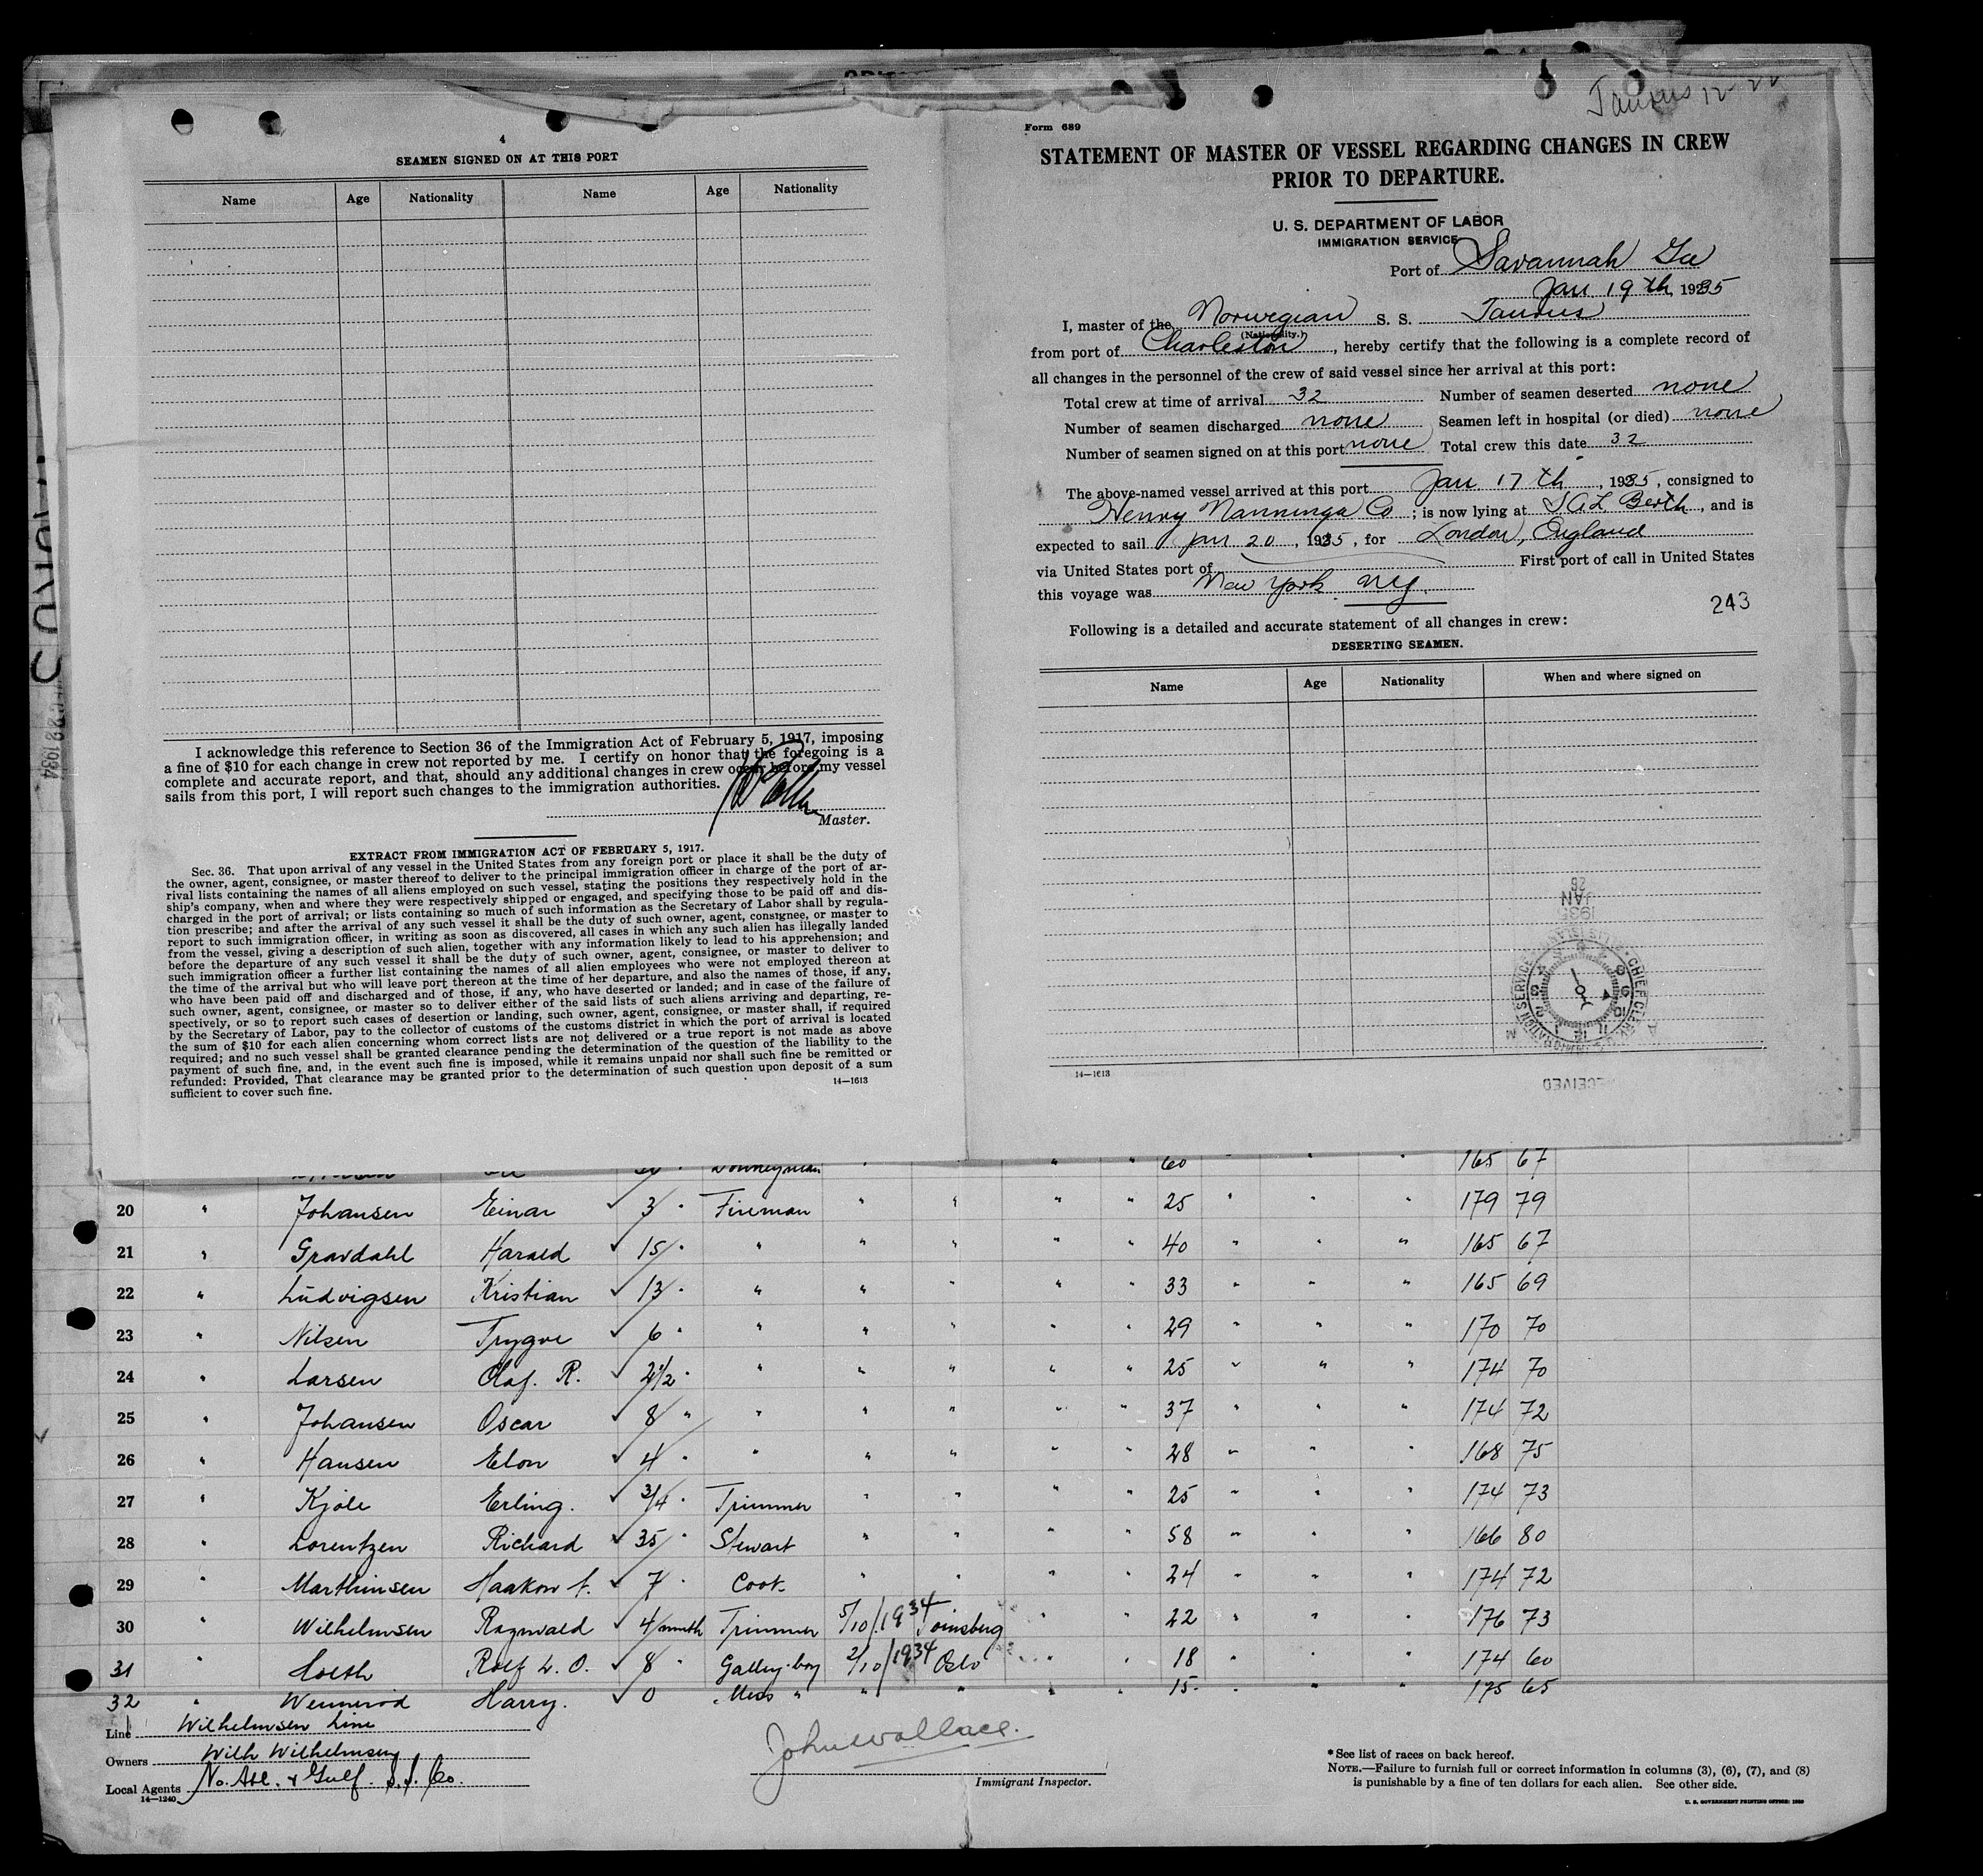 4
SEAMEN SIGNED ON AT THIS PORT
Name Age Nationality Name Age Nationality
I acknowledge this reference to Section 36 of the Immigration Act of February 5, 1917, imposing
a fine of $10 for each change in crew not reported by me. I certify on honor that the foregoing is a
complete and accurate report, and that, should any additional changes in crew occur before my vessel
sails from this port, I will report such changes to the immigration authorities.
Master.
EXTRACT FROM IMMIGRATION ACT OF FEBRUARY 5, 1917.
Sec. 36. That upon arrival of any vessel in the United States from any foreign port or place it shall be the duty of
the owner, agent, consignee, or master thereof to deliver to the principal immigration officer in charge of the port of ar-
rival lists containing the names of all aliens employed on such vessel, stating the positions they respectively hold in the
ship's company, when and where they were respectively shipped or engaged, and specifying those to be paid off and dis-
charged in the port of arrival; or lists containing so much of such information as the Secretary of Labor shall by regula-
tion prescribe; and after the arrival of any such vessel it shall be the duty of such owner, agent, consignee, or master to
report to such immigration officer, in writing as soon as discovered, all cases in which any such alien has illegally landed
from the vessel, giving a description of such alien, together with any information likely to lead to his apprehension; and
before the departure of any such vessel it shall be the duty of such owner, agent, consignee, or master to deliver to
such immigration officer a further list containing the names of all alien employees who were not employed thereon at
the time of the arrival but who will leave port thereon at the time of her departure, and also the names of those, if any,
who have been paid off and discharged and of those, if any, who have deserted or landed; and in case of the failure of
such owner, agent, consignee, or master so to deliver either of the said lists of such aliens arriving and departing, re-
spectively, or so to report such cases of desertion or landing, such owner, agent, consignee, or master shall, if required
by the Secretary of Labor, pay to the collector of customs of the customs district in which the port of arrival is located
the sum of $10 for each alien concerning whom correct lists are not delivered or a true report is not made as above
required; and no such vessel shall be granted clearance pending the determination of the question of the liability to the
payment of such fine, and, in the event such fine is imposed, while it remains unpaid nor shall such fine be remitted or
refunded: Provided, That clearance may be granted prior to the determination of such question upon deposit of a sum
sufficient to cover such fine.
14—1613
Taurus 12-22
Form 689
STATEMENT OF MASTER OF VESSEL REGARDING CHANGES IN CREW
PRIOR TO DEPARTURE.
U. S. DEPARTMENT OF LABOR
IMMIGRATION SERVICE
Port of Savannah Ga
Jan 19th, 1935
I, master of the Norwegian S. S. Taurus
(Nationality.)
from port of Charleston, hereby certify that the following is a complete record of
all changes in the personnel of the crew of said vessel since her arrival at this port:
Total crew at time of arrival 32 Number of seamen deserted none
Number of seamen discharged none Seamen left in hospital (or died) none
Number of seamen signed on at this port none Total crew this date 32
The above-named vessel arrived at this port Jan 17th, 1935, consigned to
Henry Nanninga Co; is now lying at SAL Berth, and is
expected to sail Jan 20, 1935, for London, England
via United States port of First port of call in United States
this voyage was New York NY.
243
Following is a detailed and accurate statement of all changes in crew:
DESERTING SEAMEN.
Name Age Nationality When and where signed on
1935
JAN
26
IMMIGRATION SERVICE
CHIEF CLERK
RECEIVED
14—1613
Donkeyman 60 " " " 165 67
20 " Johansen Einar ✓ 3 " Fireman " " " " 25 " " " 179 79
21 " Gravdahl Harald ✓ 15 " " " " " " 40 " " " 165 67
22 " Ludvigsen Kristian ✓ 13 " " " " " " 33 " " " 165 69
23 " Nilsen Trygve ✓ 6 " " " " " " 29 " " " 170 70
24 " Larsen Olaf. R. ✓ 2 1/2 " " " " " " 25 " " " 174 70
25 " Johansen Oscar ✓ 8 " " " " " " 37 " " " 174 72
26 " Hansen Elon ✓ 4 " " " " " " 28 " " " 168 75
27 " Kjöle Erling. ✓ 3/4 " Trimmer " " " " 25 " " " 174 73
28 " Lorentzen Richard ✓ 35 " Stewart " " " " 58 " " " 166 80
29 " Marthinsen Haakon A. ✓ 7 " Cook " " " " 24 " " " 174 72
30 " Wilhelmsen Ragnvald ✓ 4/month Trimmer 5/10/1934 Tönsberg " " 22 " " " 176 73
31 " Holth Rolf L. O. ✓ 8 " Galley-boy 2/10/1934 Oslo " " 18 " " " 174 60
32 " Wennerod Harry. ✓ 0 Mess " " " " " 15 " " " 175 65
Line Wilhelmsen Line
Owners Wilh Wilhelmsen
Local Agents No. Atl. & Gulf. S.S. Co.
14—1240
John Wallace.
Immigrant Inspector.
*See list of races on back hereof.
NOTE.—Failure to furnish full or correct information in columns (3), (6), (7), and (8)
is punishable by a fine of ten dollars for each alien. See other side.
U. S. GOVERNMENT PRINTING OFFICE: 1929